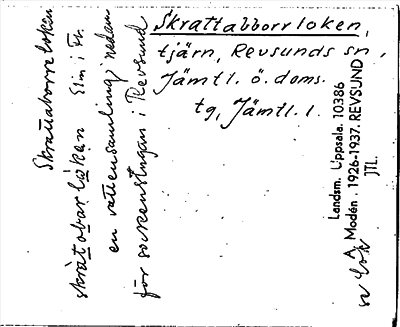 Skrattabborrloken,
tjärn, Revsunds sn,
Jämtl. ö. doms.
tg, Jämtl. l.
Skrattaborreloken
skràtobarlö̀ken Elin i Fr.
en vattensamling nedan
för sockenstugan i Revsund
Landsm. Uppsala. 10386
A. Modén. 1926-1937. REVSUND
JTL.